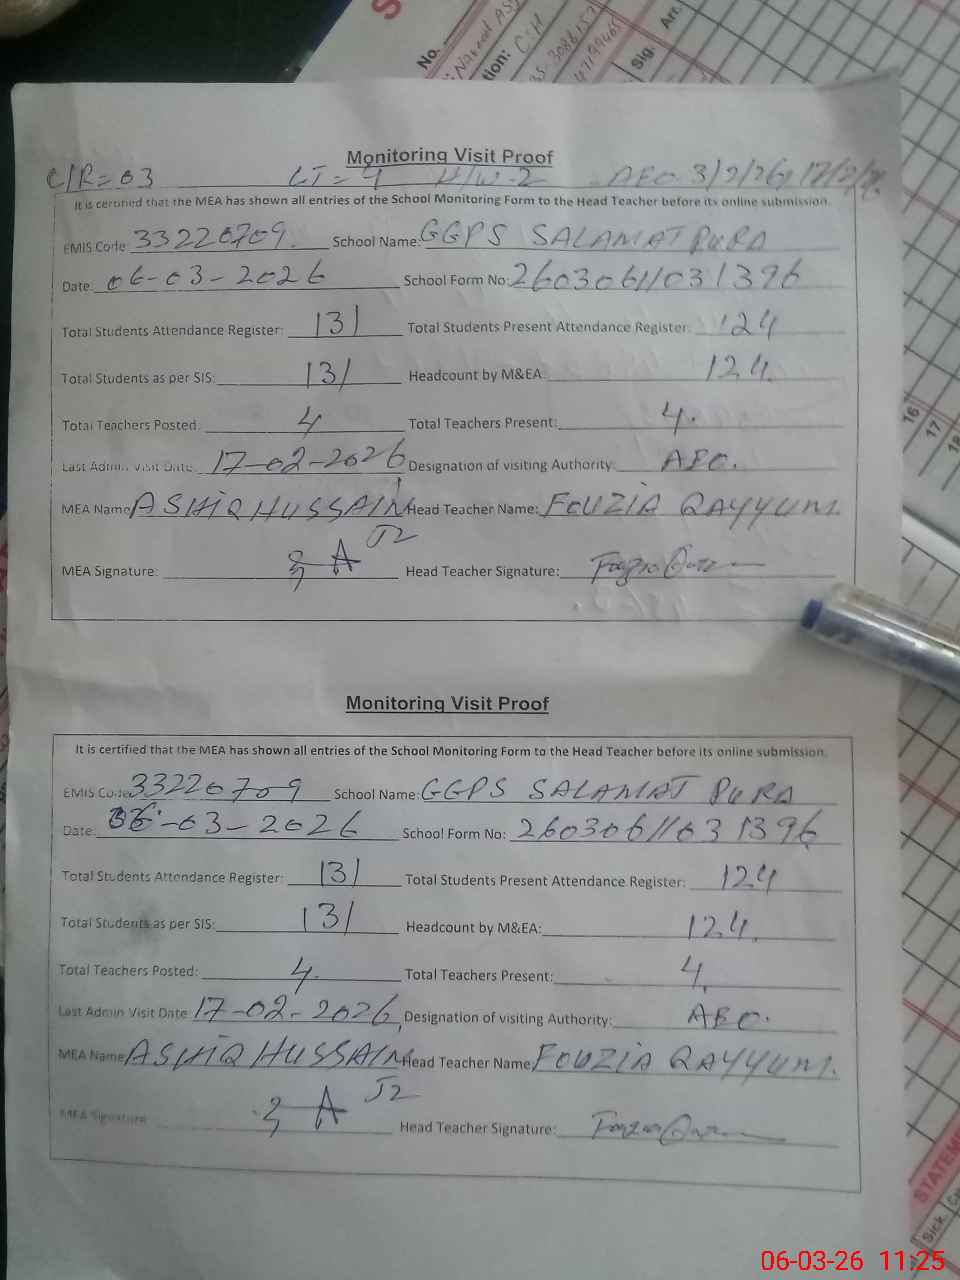 No.
tion:
Sig.
Monitoring Visit Proof
C/R=03 LT=4 H/W-2 AEO 3/2/26,
It is certified that the MEA has shown all entries of the School Monitoring Form to the Head Teacher before its online submission.
EMIS Code 33220709. School Name: GGPS SALAMAT PURA
Date: 06-03-2026 School Form No: 26030611031396
Total Students Attendance Register: 131 Total Students Present Attendance Register: 124
Total Students as per SIS: 131 Headcount by M&EA: 124.
Total Teachers Posted: 4 Total Teachers Present: 4.
Last Admin Visit Date: 17-02-2026 Designation of visiting Authority: AEO.
MEA Name ASHIQ HUSSAIN Head Teacher Name: FOUZIA QAYYUM.
MEA Signature: Head Teacher Signature:
16
17
18
Monitoring Visit Proof
It is certified that the MEA has shown all entries of the School Monitoring Form to the Head Teacher before its online submission.
EMIS Code: 33220709 School Name: GGPS SALAMAT PURA
Date: 06-03-2026 School Form No: 26030611031396
Total Students Attendance Register: 131 Total Students Present Attendance Register: 124
Total Students as per SIS: 131 Headcount by M&EA: 124.
Total Teachers Posted: 4. Total Teachers Present: 4.
Last Admin Visit Date 17-02-2026, Designation of visiting Authority: AEO.
MEA Name ASHIQ HUSSAIN Head Teacher Name FOUZIA QAYYUM.
MEA Signature Head Teacher Signature:
STATEME
Sick.
06-03-26 11:25